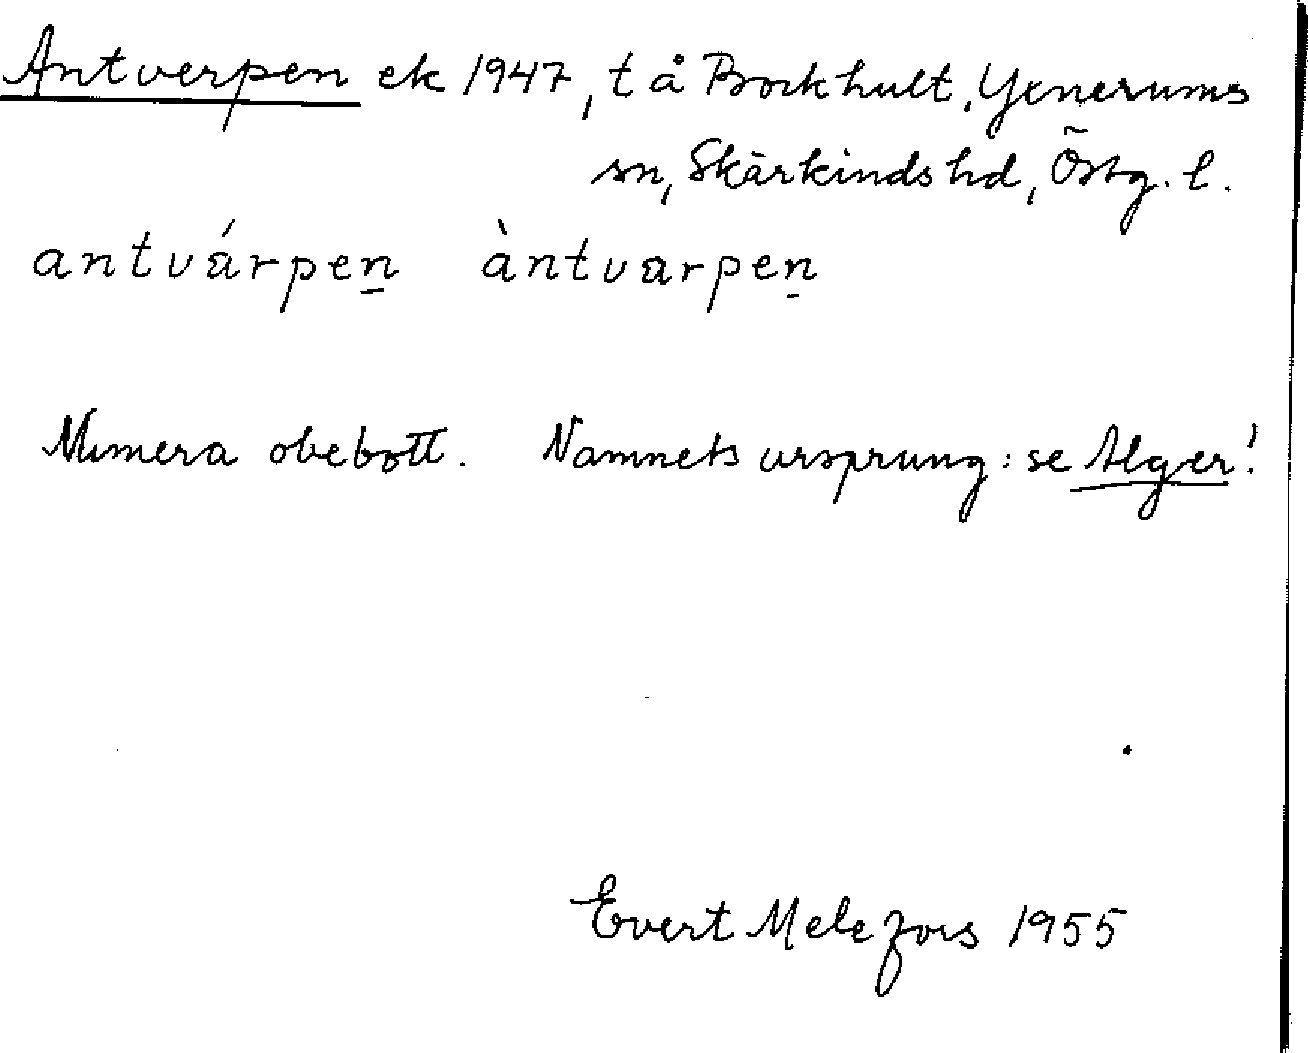 Antverpen ek 1947, t å Bockhult, Yxnerums
sn, Skärkinds hd, Östg. l.
antvárpen̠ àntvarpen̠
Numera obebott. Namnets ursprung: se Alger!
Evert Melefors 1955